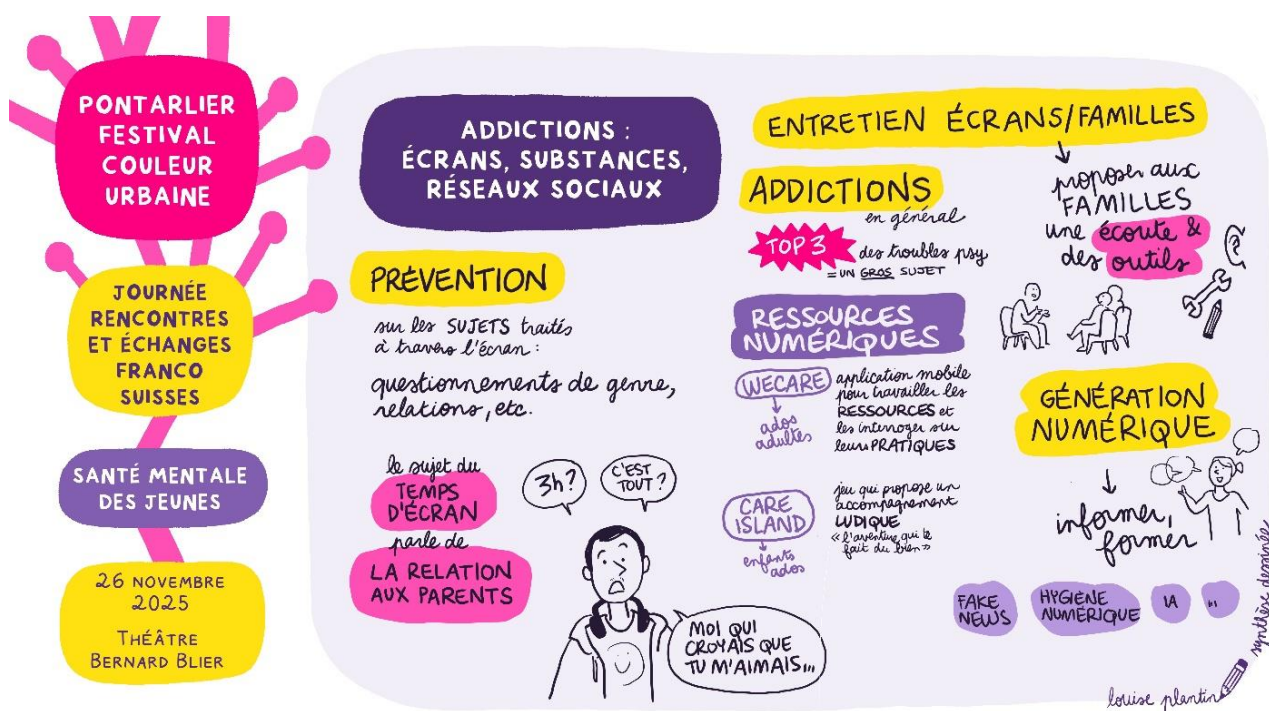 PONTARLIER
FESTIVAL
COULEUR
URBAINE
JOURNÉE
RENCONTRES
ET ÉCHANGES
FRANCO
SUISSES
SANTÉ MENTALE
DES JEUNES
26 NOVEMBRE
2025
THÉÂTRE
BERNARD BLIER
ADDICTIONS :
ÉCRANS, SUBSTANCES,
RÉSEAUX SOCIAUX
PRÉVENTION
sur les SUJETS traités
à travers l'écran :
questionnements de genre,
relations, etc.
le sujet du
TEMPS
D'ÉCRAN
parle de
LA RELATION
AUX PARENTS
3h?
C'EST
TOUT?
MOI QUI
CROYAIS QUE
TU M'AIMAIS...
ENTRETIEN ÉCRANS/FAMILLES
proposer aux
FAMILLES
une écoute &
des outils
ADDICTIONS
en général
TOP 3
des troubles psy
= UN GROS SUJET
RESSOURCES
NUMÉRIQUES
WECARE
ados
adultes
application mobile
pour travailler les
RESSOURCES et
les interroger sur
leurs PRATIQUES
CARE
ISLAND
enfants
ados
jeu qui propose un
accompagnement
LUDIQUE
« l'aventure qui te
fait du bien »
GÉNÉRATION
NUMÉRIQUE
informer,
former
FAKE
NEWS
HYGIÈNE
NUMÉRIQUE
IA
...
louise plantin
synthèse dessinée